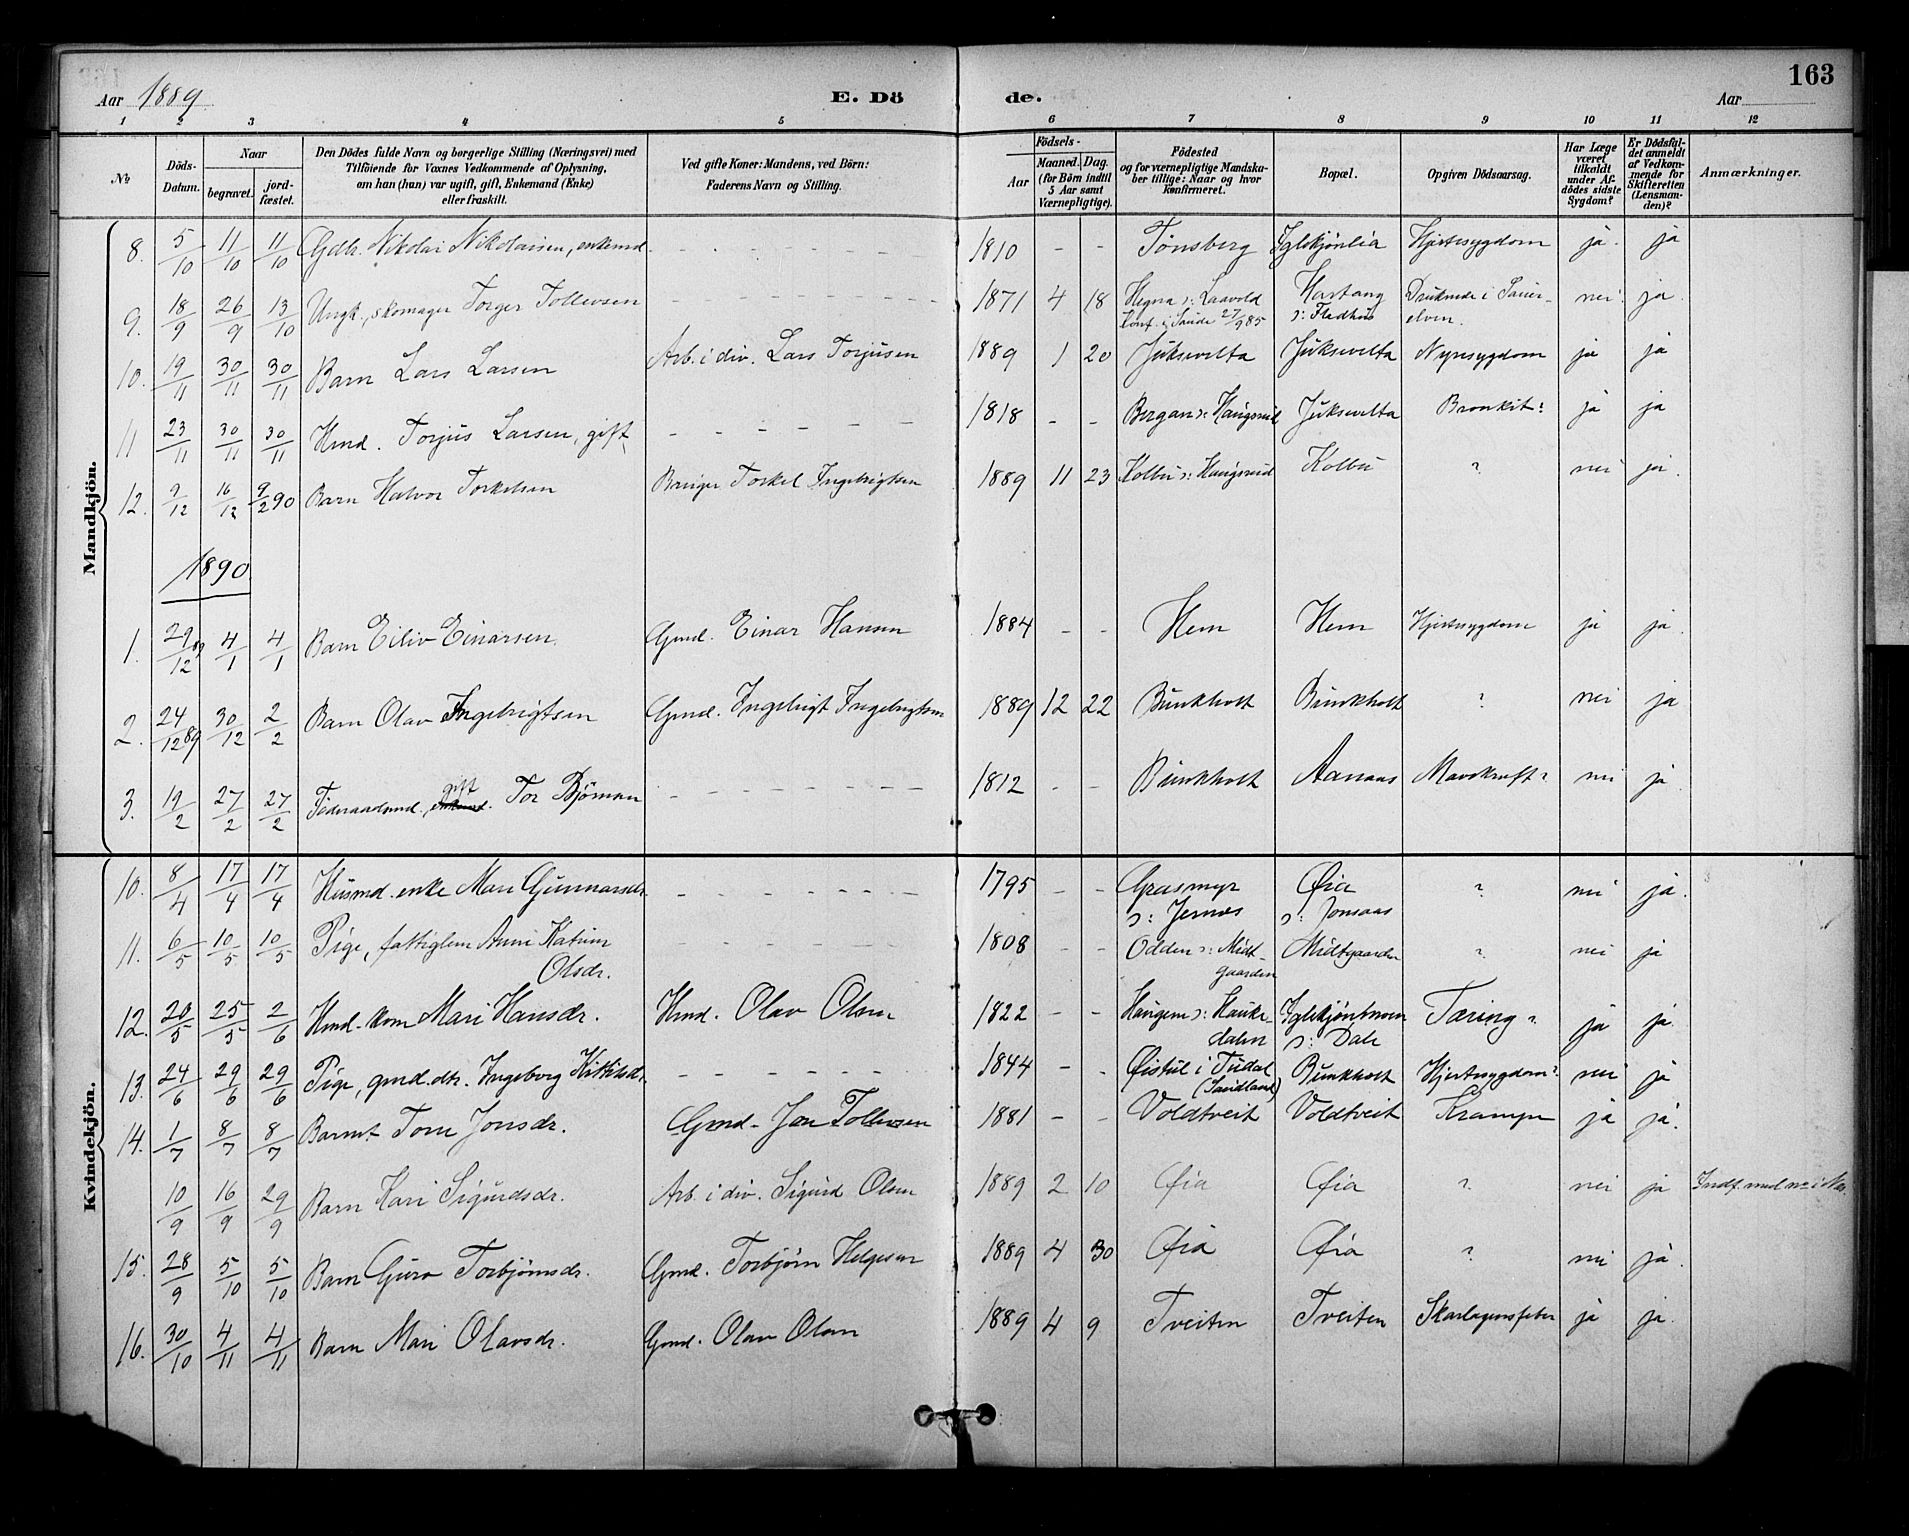 163
Aar 1889. E. Dö de. Aar
1 2 3 4 5 6 7 8 9 10 11 12
No
Döds-Datum.
Naar
begravet.
jord-fæstet.
Den Dödes fulde Navn og borgerlige Stilling (Næringsvei) med
Tilföiende for Voxnes Vedkommende af Oplysning,
om han (hun) var ugift, gift, Enkemand (Enke)
eller fraskilt.
Ved gifte Koner: Mandens, ved Börn:
Faderens Navn og Stilling.
Födsels-
Aar
Maaned. Dag.
(for Börn indtil
5 Aar samt
Værnepligtige).
Födested
og for værnepligtige Mandska-
ber tillige: Naar og hvor
Konfirmeret.
Bopæl.
Opgiven Dödsaarsag.
Har Læge
været
tilkaldt
under Af-
dödes sidste
Sygdom?
Er Dödsfal-
det anmeldt
af Vedkom-
mende for
Skifteretten
(Lensman-
den)?
Anmærkninger.
Mandkjön.
8. 5/10 11/10 11/10 Gdbr. Nikolai Nikolaisen, enkemd. - - - 1810 - - Tønsberg Iglekjønlia Hjertesygdom ja. ja
9. 18/9 26/9 13/10 Ungk., skomager Torger Tollevsen - - - 1871 4 18 Hegna ɔ: Laavold Hartang Druknede i Sauer- nei. ja.
Conf. i Saude 27/9 85 ɔ: Fladhus elven.
10. 19/11 30/11 30/11 Barn Lars Larsen Arb. i div. Lars Torjusen 1889 1 20 Juksevelta Juksevelta Nyresygdom ja ja
11 23/11 30/11 30/11 Hmd. Torjus Larsen, gift - - - 1818 - - Bergan ɔ: Haugsrud Juksevelta Bronkit? ja ja
12. 9/12 16/12 9/2 90 Barn Halvor Torkelsen Bruger Torkel Ingebrigtsen 1889 11 23 Kolbu ɔ: Haugsrud Kolbu ? nei ja.
1890
1. 29/12 89 4/1 4/1 Barn Eiliv Einarsen. Gmd. Einar Hansen 1884 - - Hem Hem Hjertesygdom ja ja.
2. 24/12 89 30/12 2/2 Barn Olav Ingebrigtsen Gmd. Ingebrigt Ingebrigtsen 1889 12 22 Bunkholt Bunkholt ? nei ja
3. 19/2 27/2 27/2 Föderaadsmd., gift Tor Björnsen - - - 1812 - - Bunkholt Aanaas Mavekræft? nei ja.
Kvindekjön.
10. 8/4 17/4 17/4 Husmd. enke Mari Gunnarsdr. - - - 1795 - - Grasmyr Øia ? nei ja.
ɔ: Jernes ɔ: Jonsaas
11. 6/5 10/5 10/5 Pige, fattiglem Anne Katrine - - - 1808 - - Odden ɔ: Midt- Midtgaarden ? nei ja
Olsdr. gaarden
12. 20/5 25/5 2/6 Hmd. kone Mari Hansdr. Hmd. Olav Olsen 1822 - - Haugen ɔ: Hauke- Iglekjøntmoen Tæring? ja ja.
dalen ɔ: Dale
13. 24/6 29/6 29/6 Pige, gmd. dtr. Ingeborg Kittilsdr. - - - 1844 - - Øistul i Tudal Bunkholt Hjertesygdom? nei ja
(Saudland)
14. 1/7 8/7 8/7 Barnet Tone Jonsdr. Gmd. Jon Tollevsen 1881 - - Voldtveit Voldtveit Krampe ja ja.
10/9 16/9 29/9 Barn Kari Sigurdsdr. Arb. i div. Sigurd Olsen 1889 2 10 Øia Øia ? nei ja Indf. med No i Næs.
15. 28/9 5/10 5/10 Barn Guro Torbjørnsdr. Gmd. Torbjørn Helgesen 1889 4 30 Øia Øia ? nei ja.
16. 30/10 4/11 4/11 Barn Mari Olavsdr. Gmd. Olav Olsen 1889 4 9 Tveiten Tveiten Skarlagensfeber ja ja.